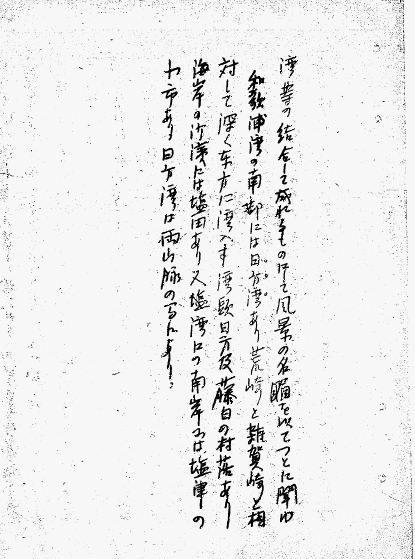 湾等の結合して成れるものにて風景の名媚を以てつとに聞ゆ
和歌浦湾の南部には日方湾あり荒崎と雑賀崎と相
対して深く東方に湾入す湾頭日方及藤白の村落あり
海岸の沙濱には塩田あり又塩湾口の南岸には塩津の
わ市あり日方湾は両山脈の間にあり。